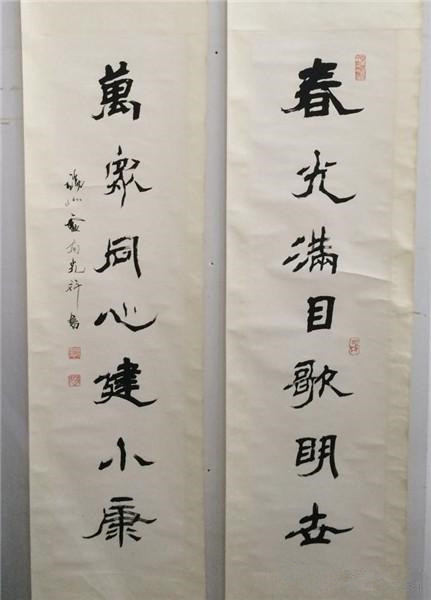 春光满目歌明世
萬众同心建小康